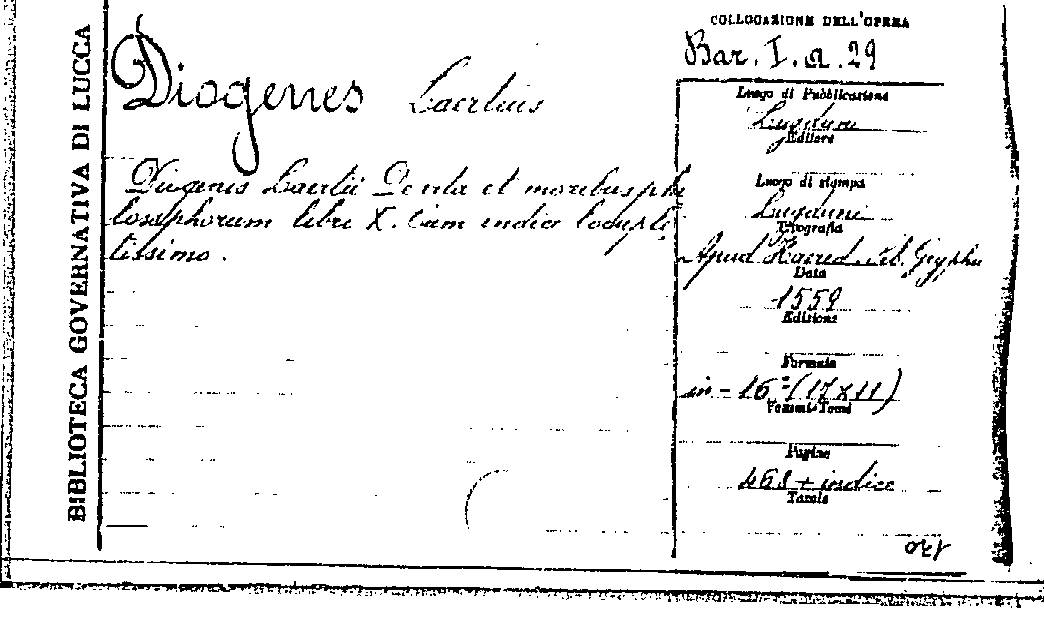 BIBLIOTECA GOVERNATIVA DI LUCCA
Diogenes Laertius
Diogenis Laertii De vita et moribus phi
losophorum libri X. Cum indice locuple
tissimo.
COLLOCAZIONE DELL'OPERA
Bar. I. a. 29
Luogo di Pubblicazione
Lugduni
Editore
Luogo di stampa
Lugduni
Tipografia
Apud Haered. Seb. Gryphii
Data
1559
Edizione
Formato
in-16º (17x11)
Volumi-Tomi
Pagine
468 + indice
Tavole